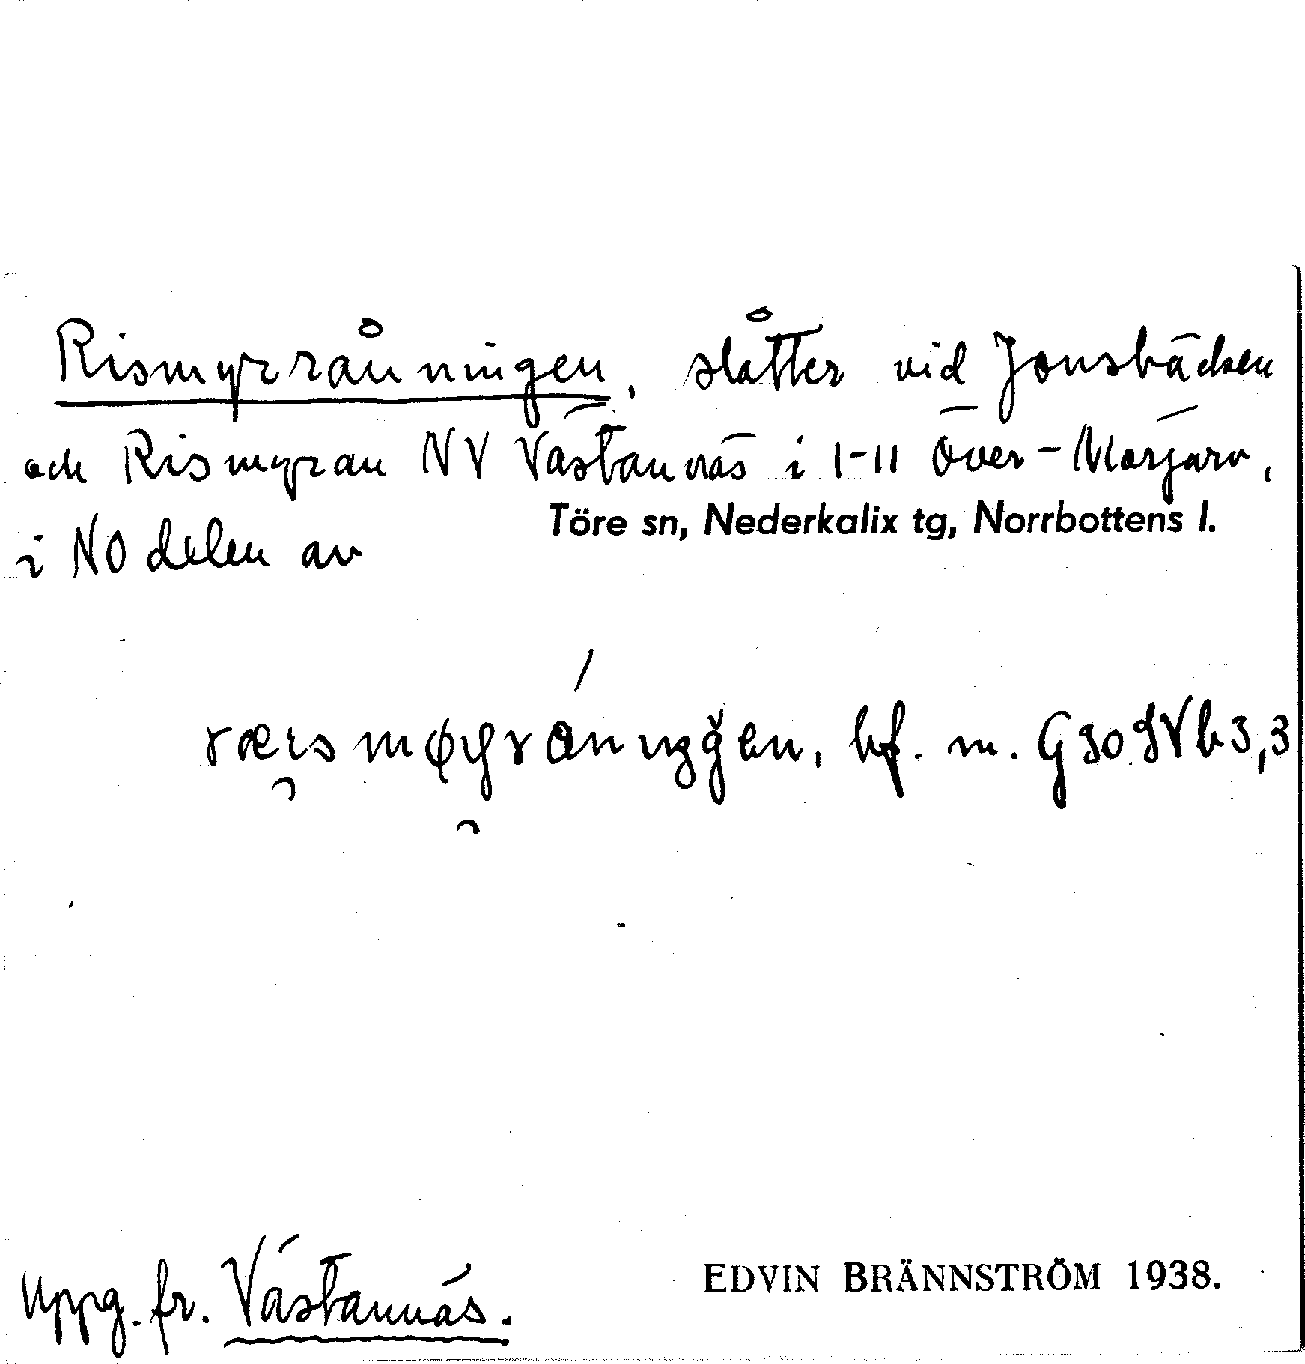 Rismyrråningen, slåtter vid Jonsbäcken
och Rismyran NV Västannäs i 1-11 Över-Morjärv,
i NO delen av Töre sn, Nederkalix tg, Norrbottens l.
hf. m.
Uppg. fr. Västannäs. EDVIN BRÄNNSTRÖM 1938.